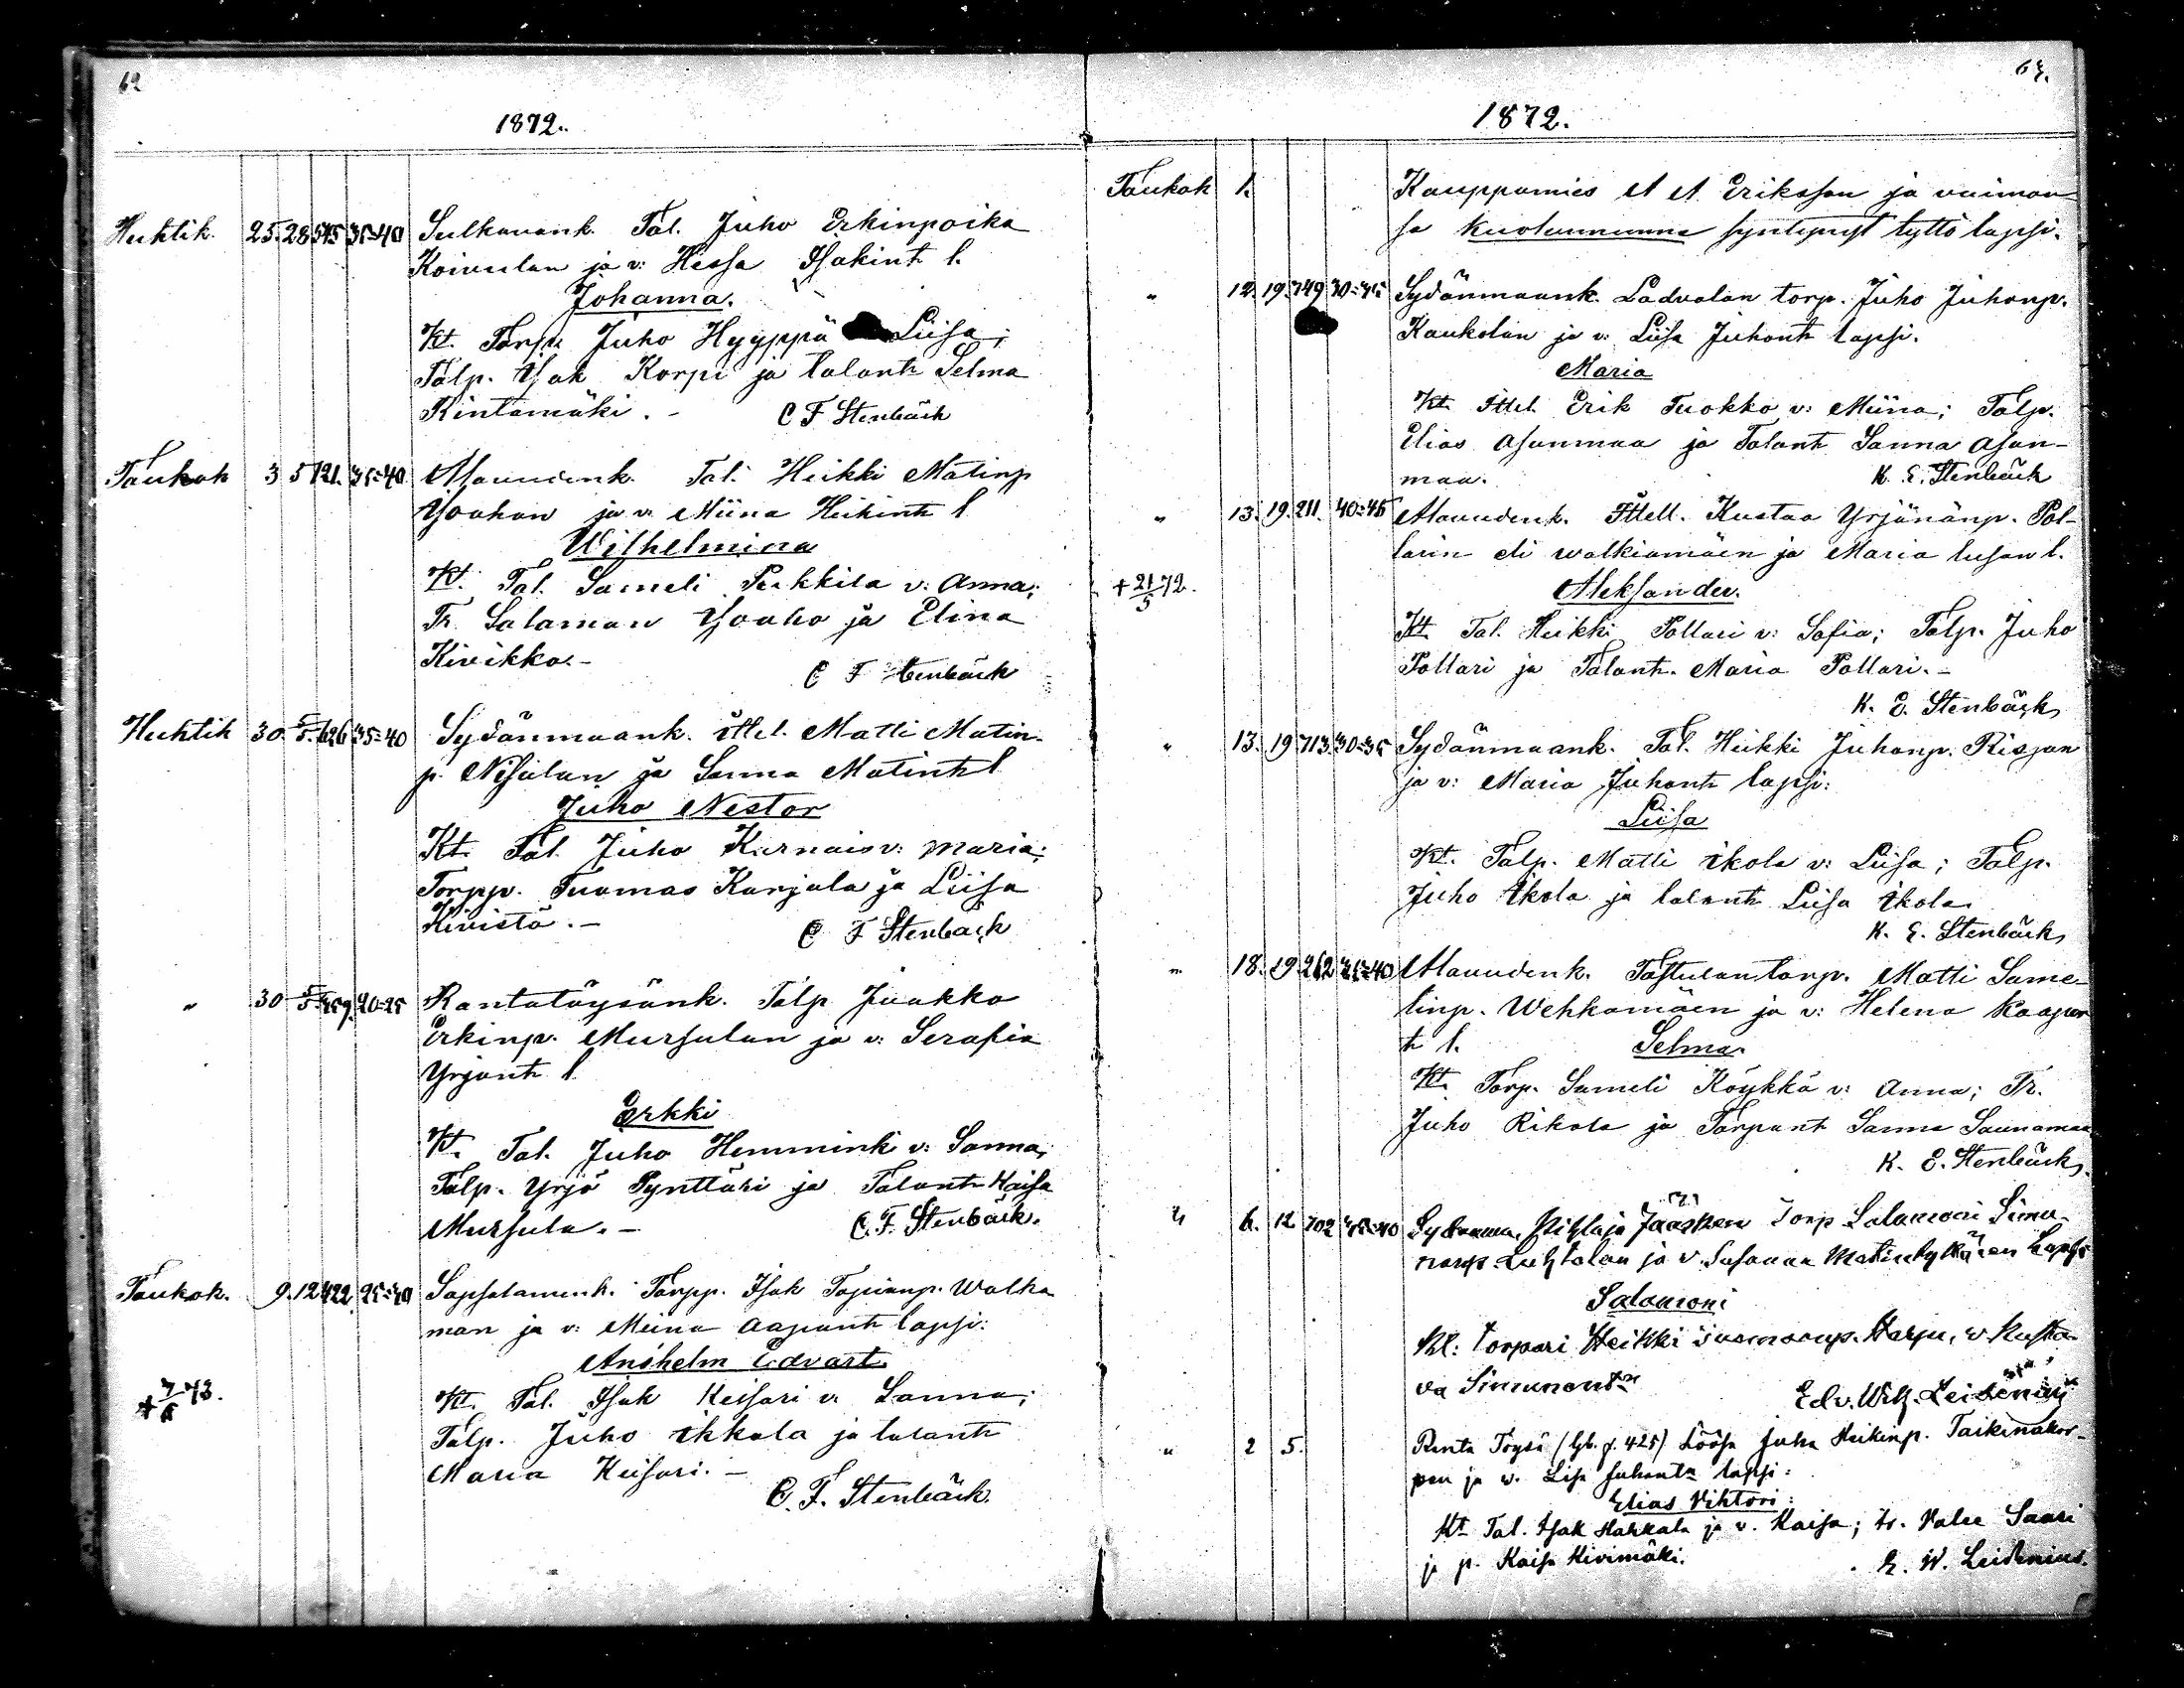 62
1872.
Huhtik. 25. 28 545 35=40 Sulkavank. Tal. Juho Erkinpoika
Koivulan ja v: Hessa Isakint l.
Johanna.
Kt. Torp. Juho Hyyppä Liisa;
Talp. Isak Korpi ja talont Selma
Rintamäki. - C F Stenbäck
Toukok 3 5 121. 35=40 Alavudenk. Tal. Heikki Matinp
Yoahon ja v: Miina Heikint l
Wilhelmina
Kt. Tal. Sameli Perkkila v: Anna;
Tr. Salaman Yoaho ja Elina
Kivikko. - C F Stenbäck
Huhtik 30. 5/5. 626 35=40 Sydänmaank. Ittel. Matti Matin-
p. Nisulan ja Sanna Matint l
Juho Nestor
Kt. Tal. Juho Kurnais v: Maria;
Torpp. Tuomas Karjala ja Liisa
Kivistö. - C F Stenbäck
" 30 5/5. 459. 20=25 Rantatöysänk. Talp Jaakko
Erkinp. Mursulan ja v: Serafia
Yrjönt l
Erkki
Kt. Tal. Juho Hemminki v: Sanna;
Talp. Yrjö Pynttäri ja Talont Kaisa
Mursula. - C. F. Stenbäck.
Toukok. 9. 12 422. 25=30 Sapsalamenk. Torpp. Isak Tapianp. Walka
man ja v: Miina Aapont lapsi:
Anshelm Edvart
+ 7/6 73. Kt. Tal. Isak Keisari v: Sanna;
Talp. Juho Ikkala ja talont
Maria Keisari. -
C. F. Stenbäck.
63.
1872.
Toukok 1. Kauppamies A A Eriksson ja vaimon
sa kuolemmana syntynyt tyttö lapsi.
" 12. 19. 749 30=35 Sydänmaank. Ladvalan torp. Juho Juhonp.
Kaukolan ja v: Liisa Juhont lapsi.
Maria
Kt. Ittel. Erik Tuokko v: Miina; Talp.
Elias Asunmaa ja Talont Sanna Asun-
maa. K. E. Stenbäck
" 13. 19. 211. 40=45 Alavudenk. Ittell. Kustaa Yrjänänp. Pol-
larin eli walkiamäen ja Maria Lusan l.
+ 21/5 72. Aleksander.
Kt. Tal. Heikki Pollari v: Sofia; Talp. Juho
Pollari ja Talont. Maria Pollari. -
K. E. Stenbäck
" 13. 19 713 30=35 Sydänmaank. Tal. Heikki Juhonp. Risgan
ja v: Maria Juhont lapsi:
Liisa
Kt. Talp. Matti Ikola v: Liisa; Talp.
Juho Ikola ja talont Liisa Ikola.
K. E. Stenbäck
" 18. 19 262 35=40 Alavudenk. Tastulan torp. Matti Same-
linp. Wehkamäen ja v: Helena Kaapor
t l. Selma.
Kt. Torp. Sameli Köykkä v: Anna; Tr.
Juho Rikala ja Torpant Sanna Saunamaa
K. E. Stenbäck.
" 6. 12 702 35=40 Sydanma. Pihlaja Jaasken Torp Salamoni Simu-
nanp. Luhtalan ja v. Susanna Matint lapsi
Salamoni
Kt: torpari Heikki Harju, v. Kusta
va Simunont
Edv. Wilh. Leidenius
" 2 5. Ranta Töysä (lyh. f. 425) Lööse Juha Heikinp. Taikinakor-
pen ja v. Lisa Juhont lapsi:
Elias Vihtori:
Kt Tal. Isak Hakkala ja v. Kaisa; tr. Valee Saari
ja p. Kaisa Kivimäki. E. W. Leidenius.